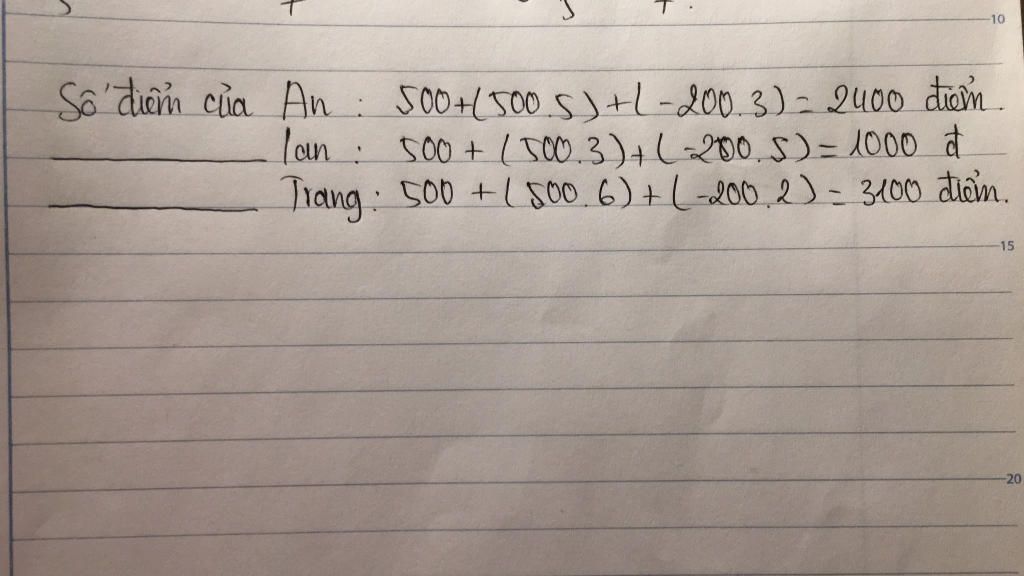 10
Số điểm của An : 500+(500.5)+(-200.3)= 2400 điểm.
lan : 500 + (500.3)+(-200.5)= 1000 đ
Trang: 500 + (500.6)+(-200.2)= 3100 điểm.
15
20